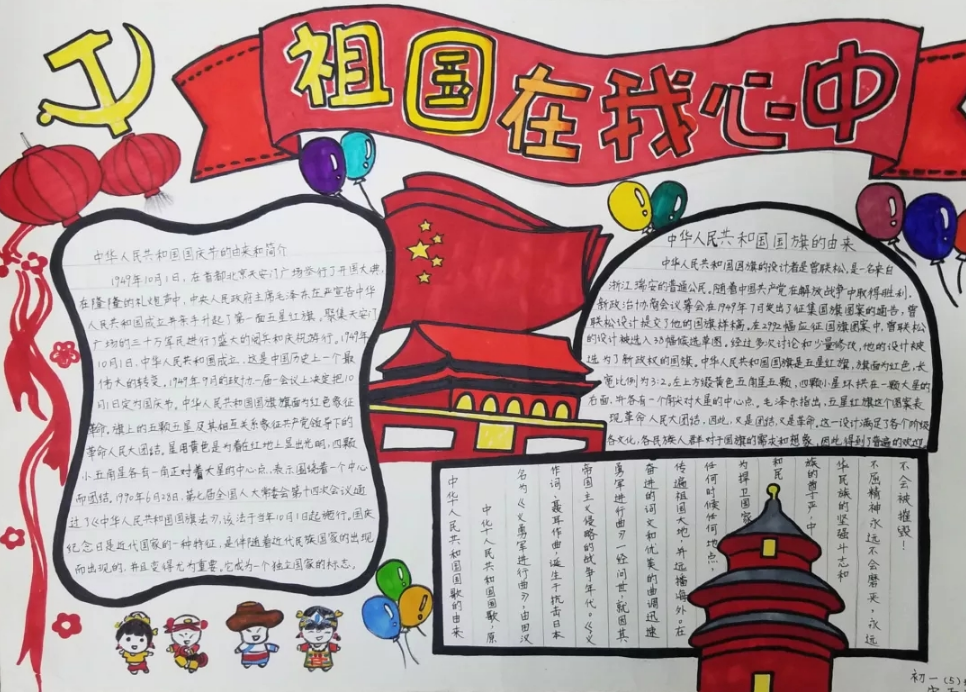 祖国在我心中
中华人民共和国国庆节的由来和简介
1949年10月1日,在首都北京天安门广场举行了开国大典,
在隆隆的礼炮声中,中央人民政府主席毛泽东庄严宣告中华
人民共和国成立并亲手升起了第一面五星红旗。聚集天安门
广场的三十万军民进行了盛大的阅兵和庆祝游行。1949年
10月1日,中华人民共和国成立,这是中国历史上一个最
伟大的转变。1949年9月的政协一届一会议上决定把10
月1日定为国庆节。中华人民共和国国旗旗面为红色象征
革命。旗上的五颗五星及其相互关系象征共产党领导下的
革命人民大团结,星用黄色是为着在红地上显出光明,四颗
小五角星各有一角正对着大星的中心点,表示围绕着一个中心
而团结,1990年6月28日,第七届全国人大常委会第十四次会议通
过了《中华人民共和国国旗法》,该法于当年10月1日起施行。国庆
纪念日是近代国家的一种特征,是伴随着近代民族国家的出现
而出现的,并且变得尤为重要。它成为一个独立国家的标志。
中华人民共和国国旗的由来
中华人民共和国国旗的设计者是曾联松,是一名来自
浙江瑞安的普通公民。随着中国共产党在解放战争中取得胜利,
新政治协商会议筹会在1949年7月发出了征集国旗图案的通告,曾
联松设计提交了他的国旗样稿。在2992幅应征国旗图案中,曾联松
的设计被选入38幅候选草图。经过多次讨论和少量修改,他的设计被
选为了新政权的国旗。中华人民共和国国旗是五星红旗,旗面为红色,长
宽比例为3:2。左上方缀黄色五角星五颗,四颗小星环拱在一颗大星的
右面,并各有一个角尖对大星的中心点。毛泽东指出,五星红旗这个图案表
现革命人民大团结。因此,又是团结又是革命。这一设计满足了各个阶级
各文化,各民族人群对于国旗的需求和想象,因此,得到了普遍的欢迎
中华人民共和国国歌的由来
中华人民共和国国歌,原
名为《义勇军进行曲》,由田汉
作词,聂耳作曲,诞生于抗击日本
帝国主义侵略的战争年代。《义
勇军进行曲》一经问世,就因其
奋进的词文和优美的曲调迅速
传遍祖国大地,并远播海外。在
任何时候任何地点,
为捍卫国家
和民
族的尊严,中
华民族的坚强斗志和
不屈精神永远不会磨灭,永远
不会被摧毁!
初一(5)